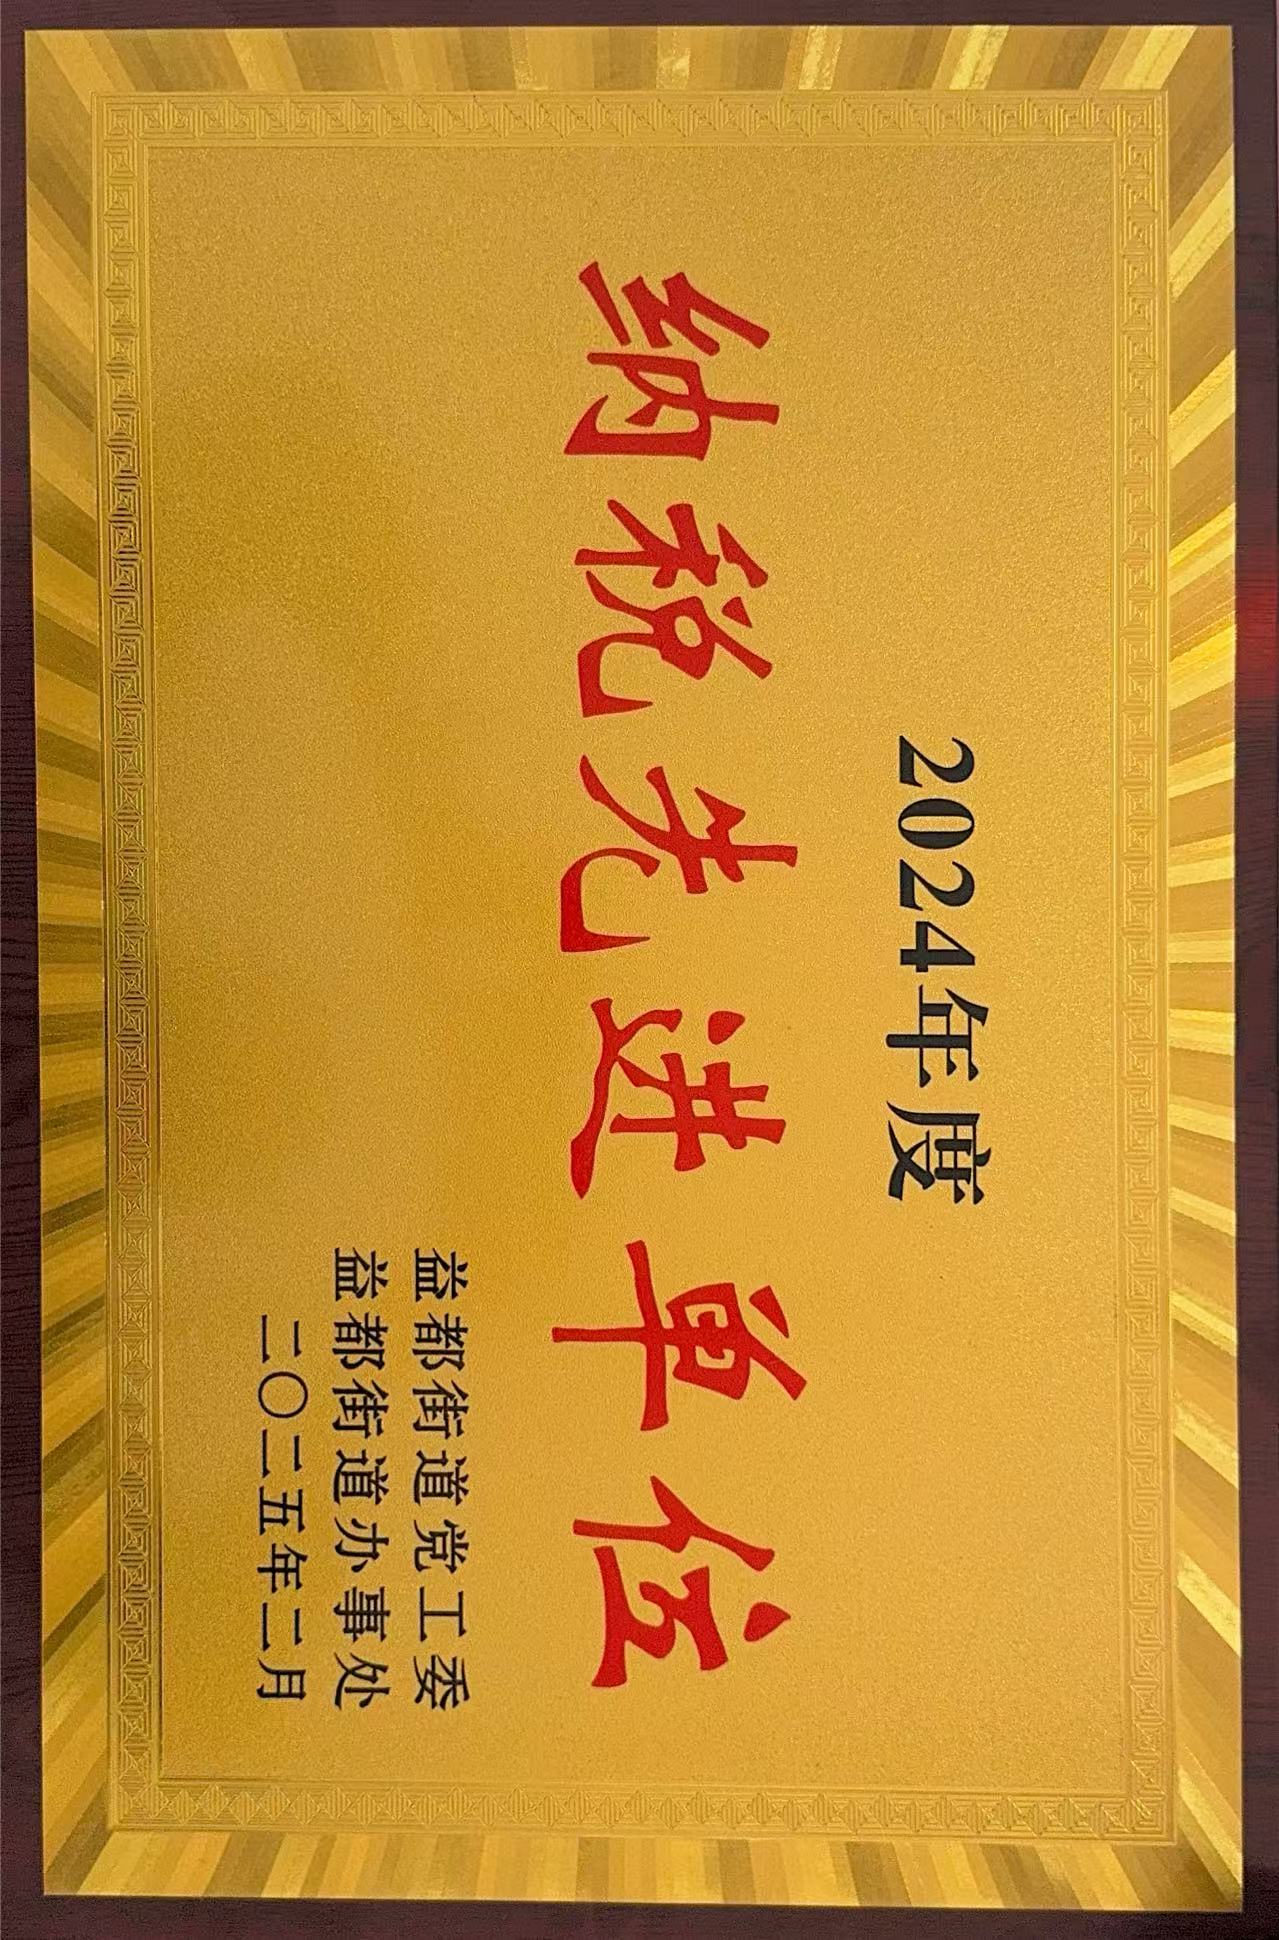 2024年度
纳税先进单位
益都街道党工委
益都街道办事处
二〇二五年二月